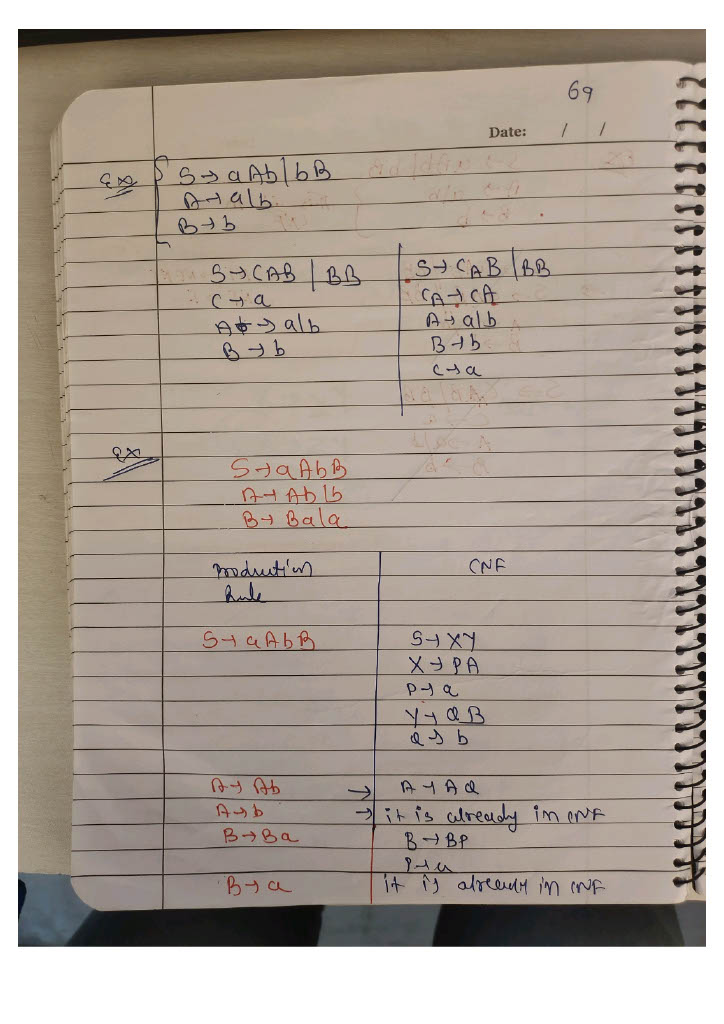 69
Date: / /
Ex S → aAb | bB
A → a|b
B → b
S → CAB | BB
C → a
A → a|b
B → b
S → CAB | BB
CA → CA
A → a|b
B → b
C → a
Ex
S → aAbB
A → Ab|b
B → Ba|a
Production Rule
CNF
S → aAbB
S → XY
X → PA
P → a
Y → QB
Q → b
A → Ab → A → AQ
A → b → it is already in CNF
B → Ba B → BP
P → a
B → a it is already in CNF